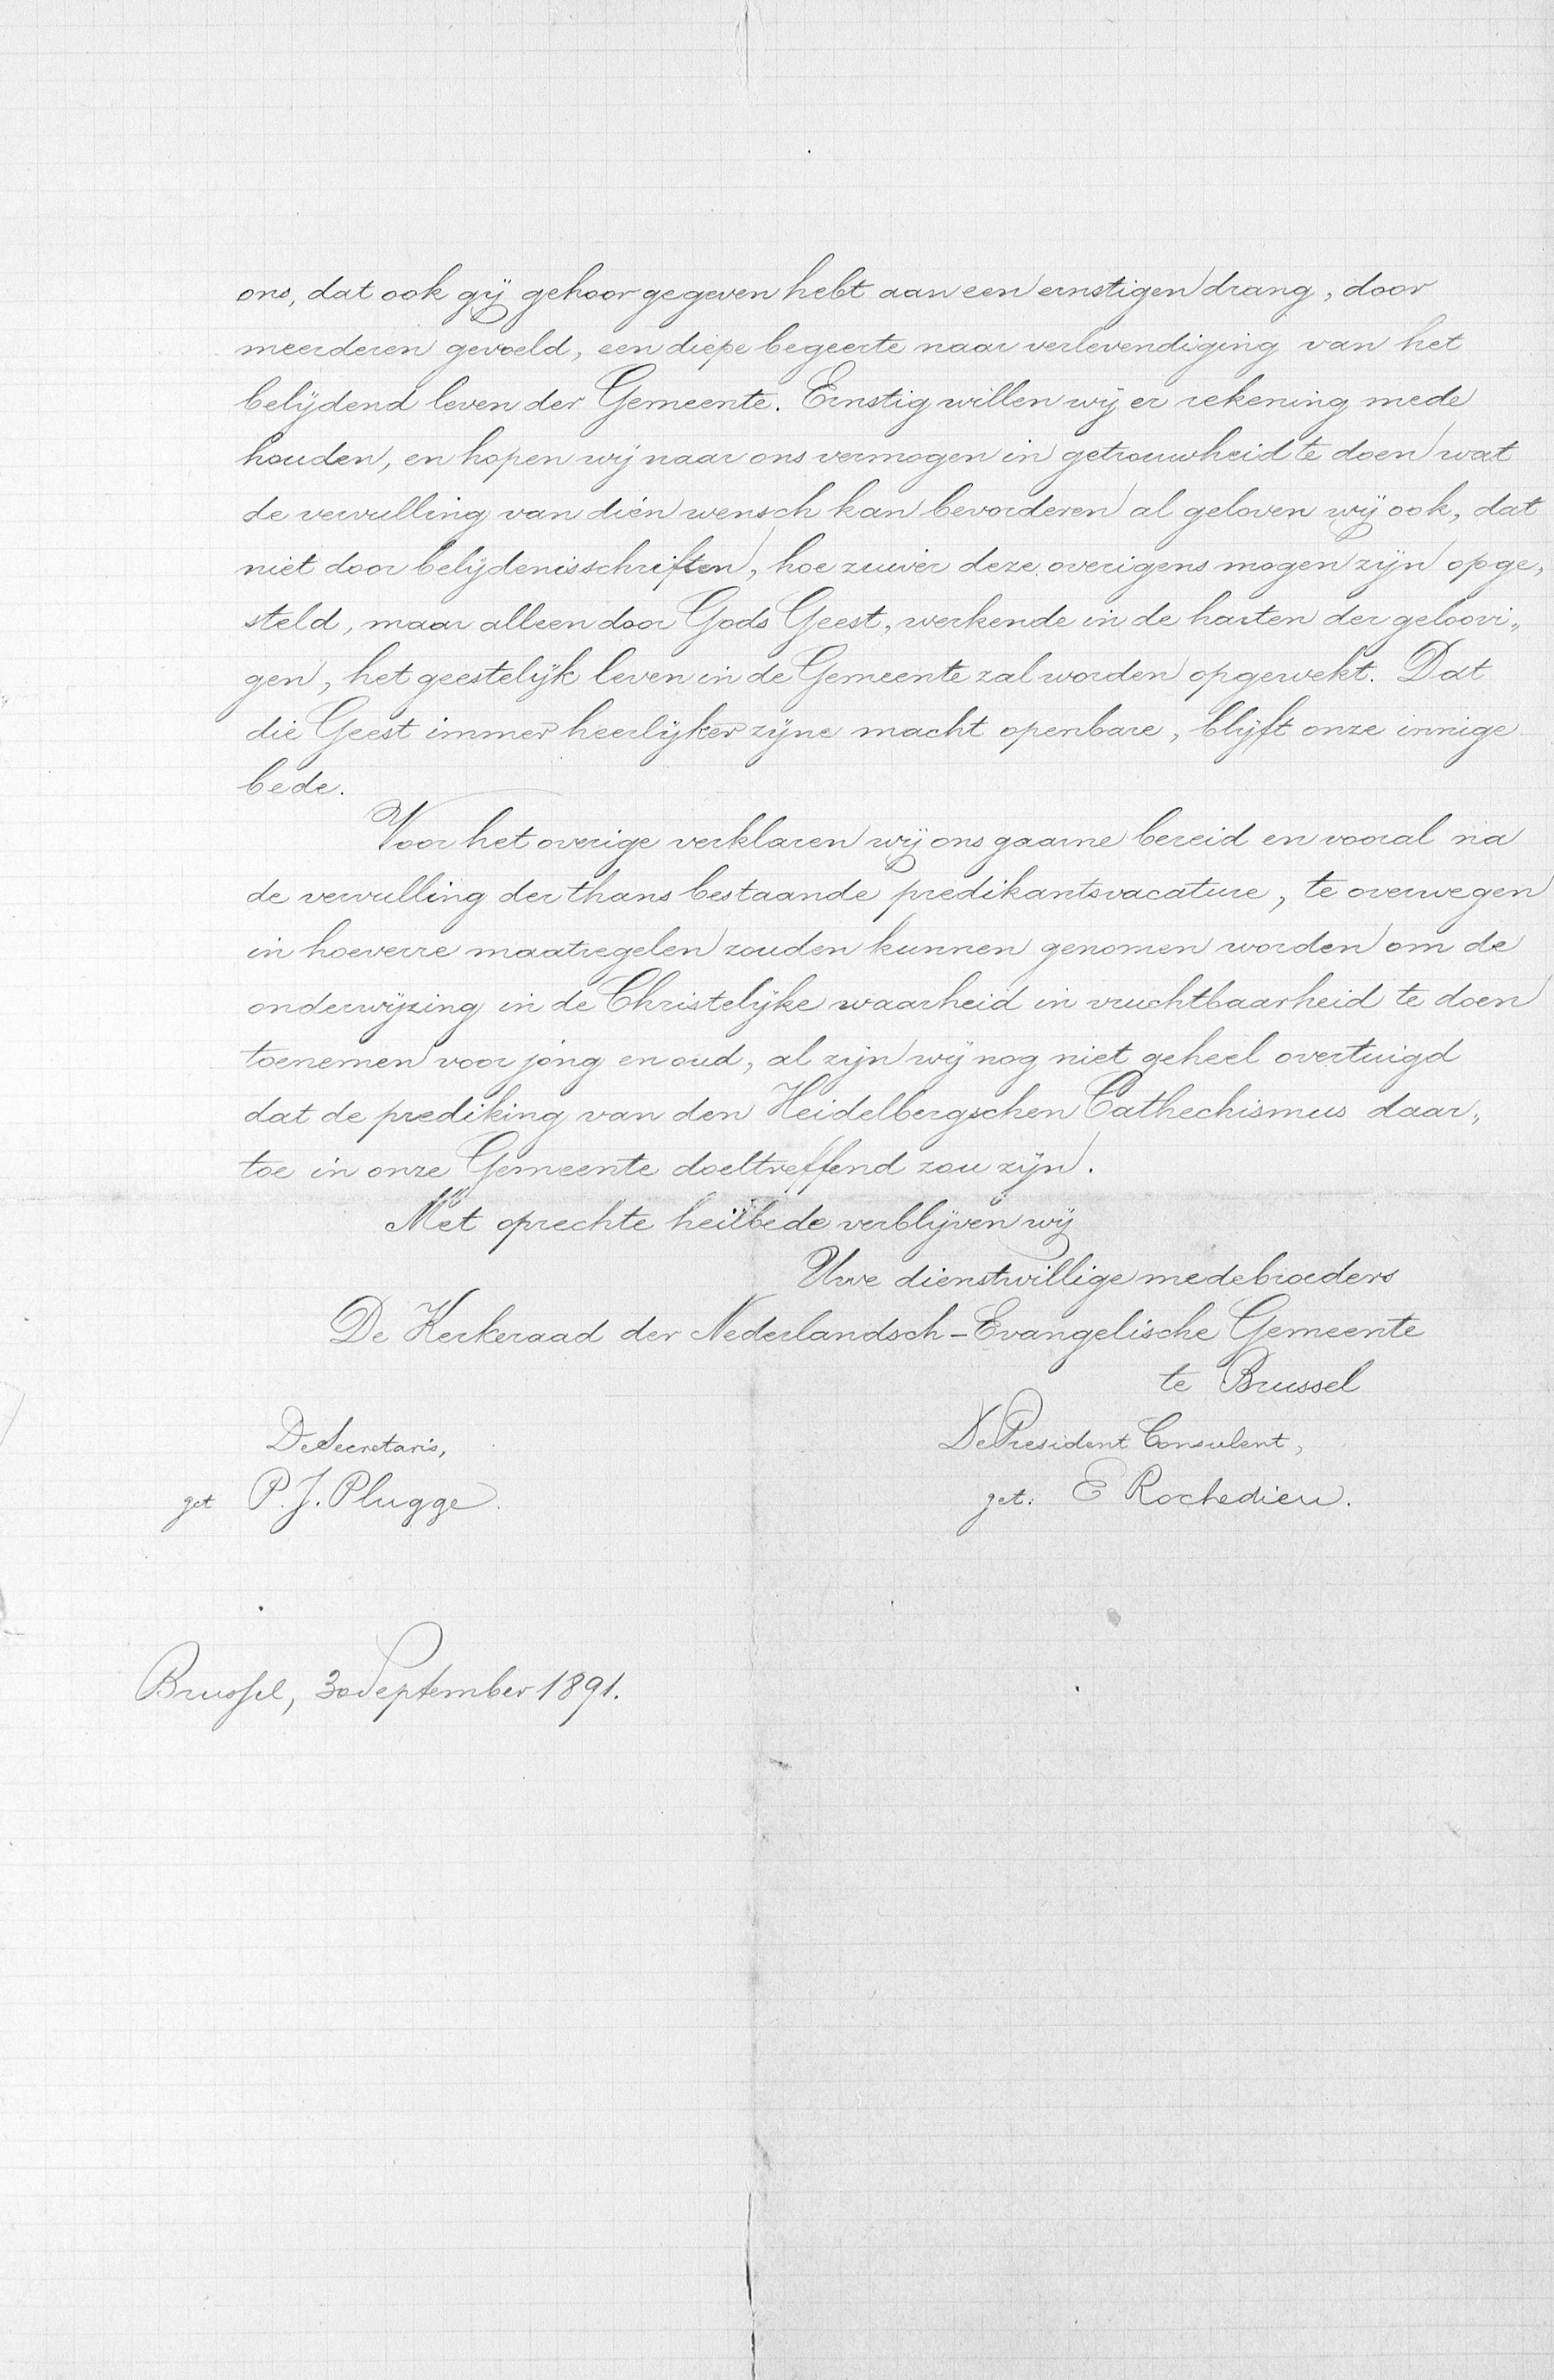 ons, dat ook gij gehoor gegeven hebt aan een ernstigen drang, door
meerderen gevoeld, een diepe begeerte naar verlevendiging van het
belijdend leven der Gemeente. Ernstig willen wij er rekening mede
houden, en hopen wij naar ons vermogen in getrouwheid te doen wat
de vervulling van dien wensch kan bevorderen al geloven wij ook, dat
niet door belijdenisschriften, hoe zuiver deze overigens mogen zijn opge„
steld, maar alleen door Gods Geest, werkende in de harten der geloovi„
gen, het geestelijk leven in de Gemeente zal worden opgewekt. Dat
die Geest immer heerlijker zijne macht openbare, blijft onze innige
bede.
Voor het overige verklaren wij ons gaarne bereid en vooral na
de vervulling der thans bestaande predikantsvacature, te overwegen
in hoeverre maatregelen zouden kunnen genomen worden om de
onderwijzing in de Christelijke waarheid in vruchtbaarheid te doen
toenemen voor jong en oud, al zijn wij nog niet geheel overtuigd
dat de prediking van den Heidelbergschen Cathechismus daar„
toe in onze Gemeente doeltreffend zou zijn.
Met oprechte heilbede verblijven wij
Uwe dienstwillige medebroeders
De Kerkeraad der Nederlandsch-Evangelische Gemeente
te Brussel
De Secretaris, De President Consulent,
get P. J. Plugge. get: E Rochedieu.
Brussel, 30 September 1891.